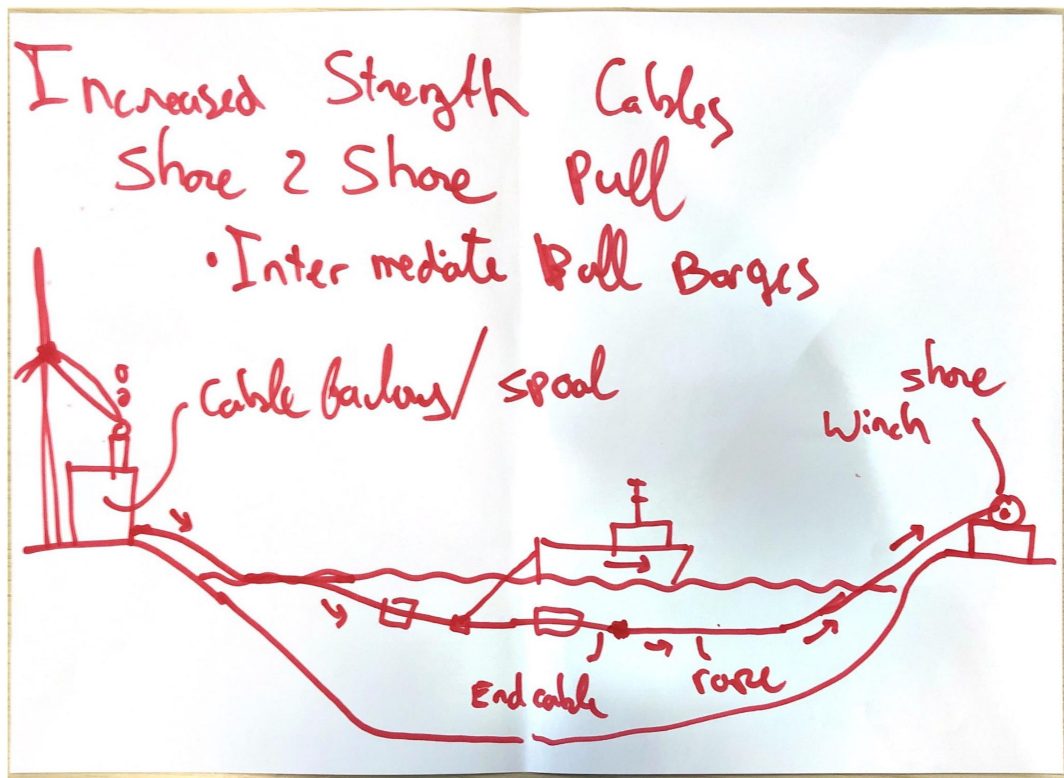 Increased Strength Cables
Shore 2 Shore Pull
• Intermediate Pull Barges
Cable factory / spool
shore
winch
End cable
rope